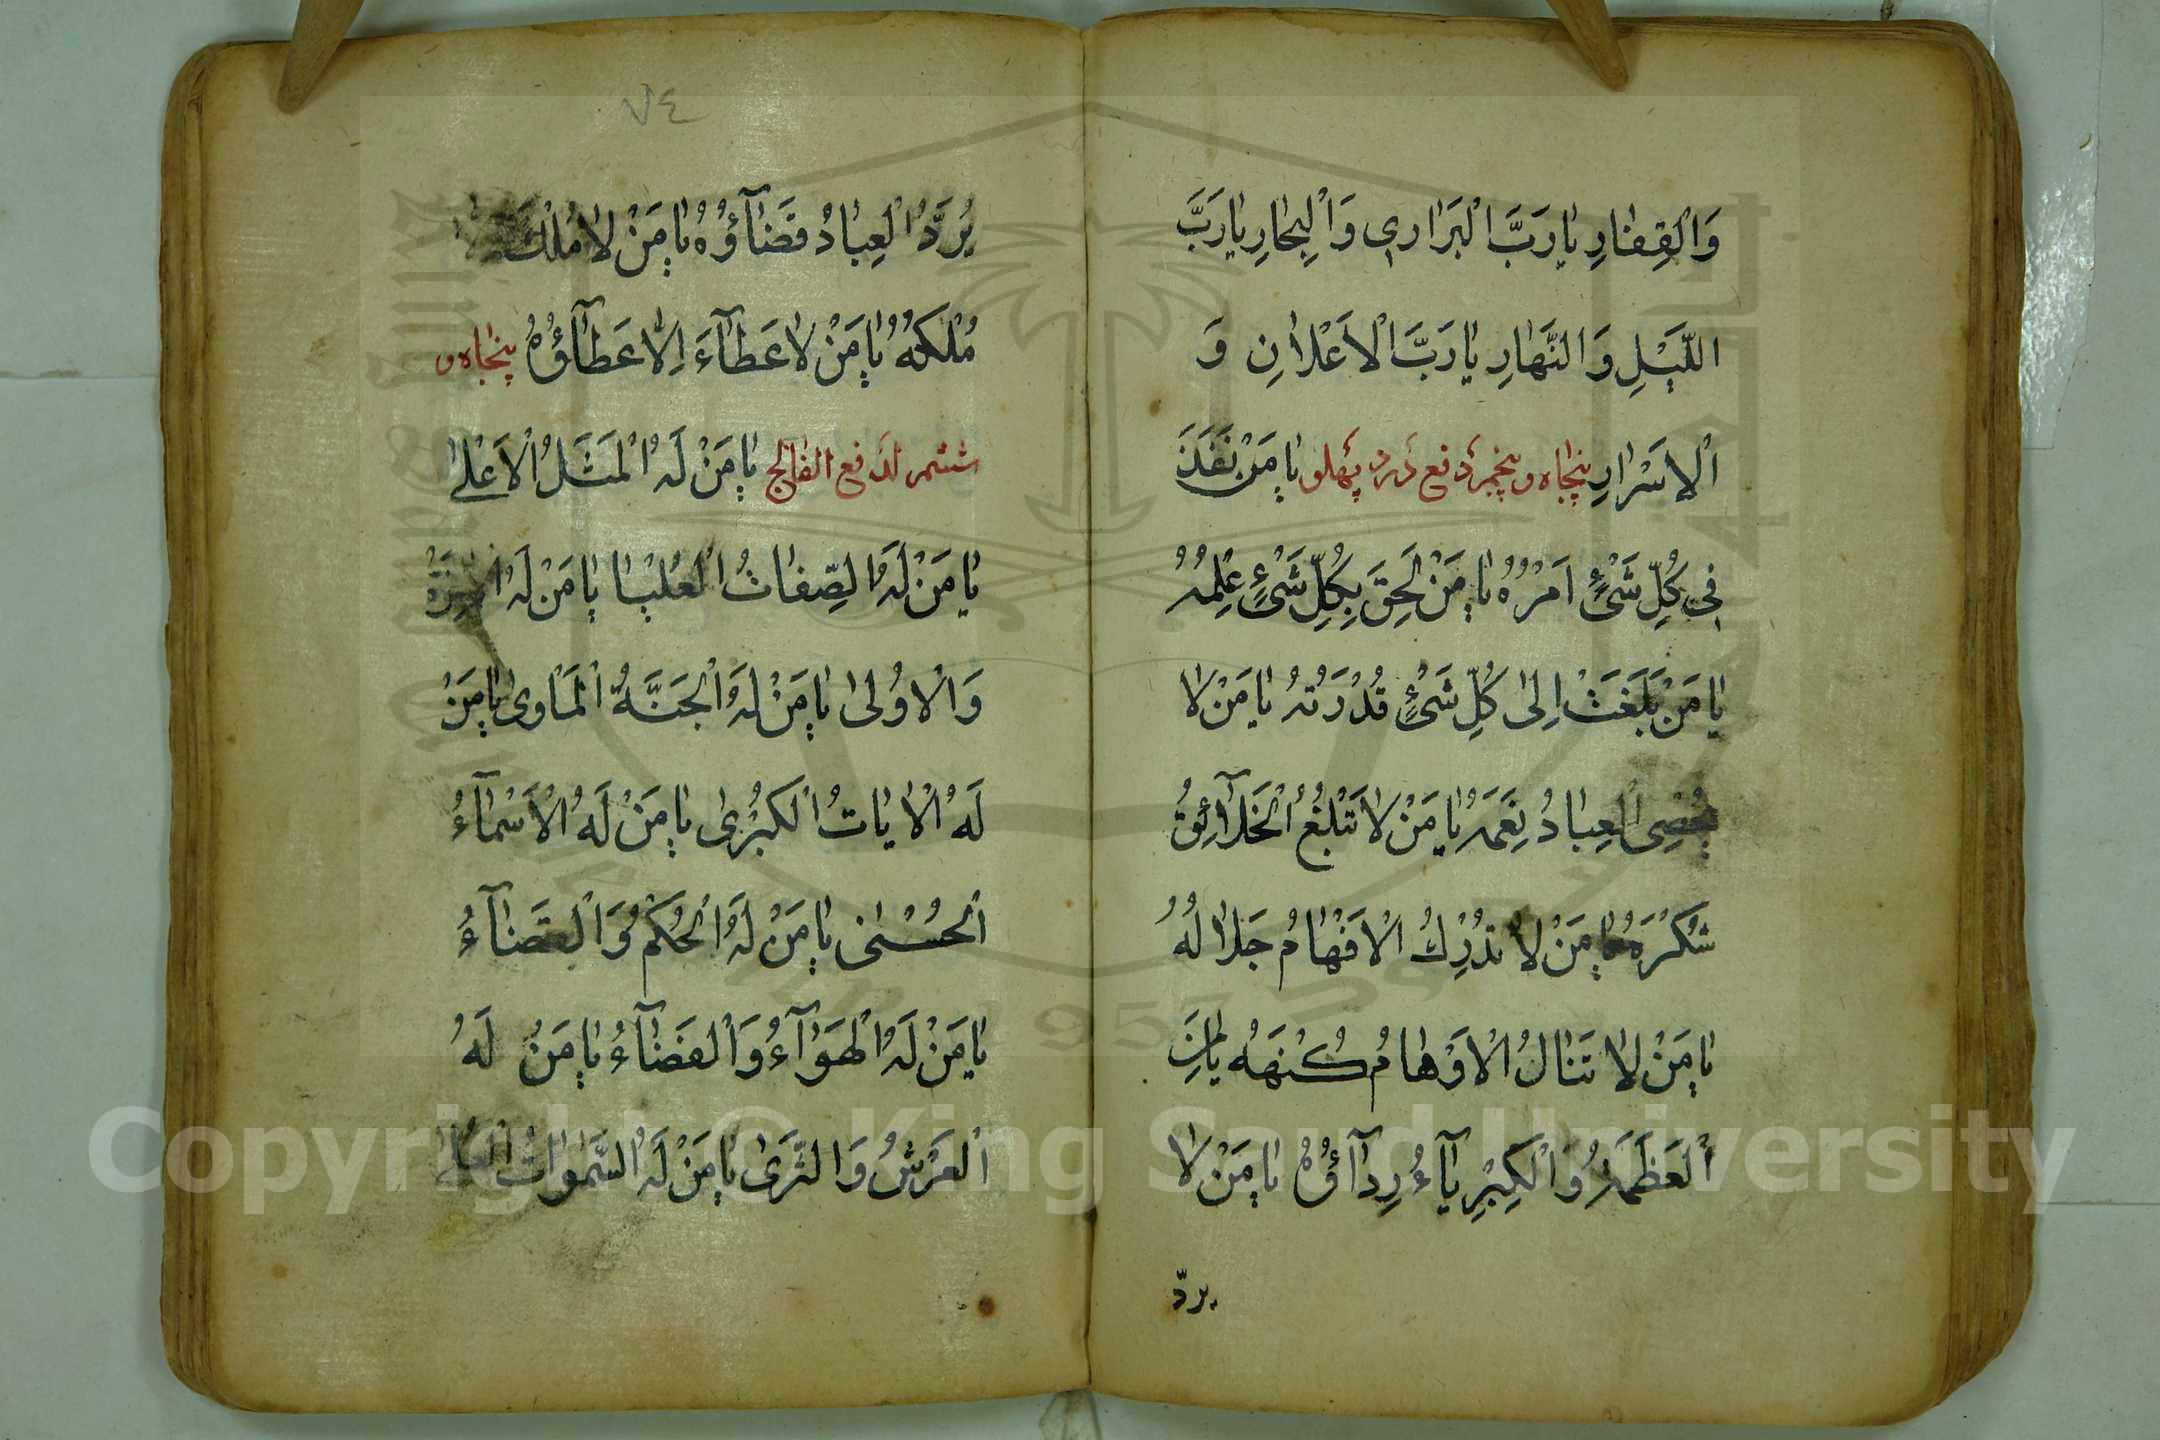 وَالْقِفَارِ يَا رَبَّ الْبَرَارِي وَالْبِحَارِ يَا رَبَّ
اللَّيْلِ وَالنَّهَارِ يَا رَبَّ الْاَعْلَانِ وَ
الْاَسْرَارِ پنجاه و پنجم دفع درد پهلو يَا مَنْ نَفَذَ
فِي كُلِّ شَيْءٍ اَمْرُهُ يَا مَنْ لَحِقَ بِكُلِّ شَيْءٍ عِلْمُهُ
يَا مَنْ بَلَغَتْ اِلَى كُلِّ شَيْءٍ قُدْرَتُهُ يَا مَنْ لَا
يُحْصِي الْعِبَادُ نِعَمَهُ يَا مَنْ لَا تَبْلُغُ الْخَلَآئِقُ
شُكْرَهُ يَا مَنْ لَا تُدْرِكُ الْاَفْهَامُ جَلَالَهُ
يَا مَنْ لَا تَنَالُ الْاَوْهَامُ كُنْهَهُ يَا مَنِ
الْعَظَمَةُ وَالْكِبْرِيَآءُ رِدَآؤُهُ يَا مَنْ لَا
يردّ
٧٤
يُرَدُّ الْعِبَادُ قَضَآؤُهُ يَا مَنْ لَا مُلْكَ
مُلْكُهُ يَا مَنْ لَا عَطَآءَ اِلَّا عَطَآؤُهُ پنجاه و
ششم لدفع الفالج يَا مَنْ لَهُ الْمَثَلُ الْاَعْلَى
يَا مَنْ لَهُ الصِّفَاتُ الْعُلْيَا يَا مَنْ لَهُ الْاٰخِرَةُ
وَالْاُولَى يَا مَنْ لَهُ الْجَنَّةُ الْمَاْوَى يَا مَنْ
لَهُ الْاٰيَاتُ الْكُبْرَى يَا مَنْ لَهُ الْاَسْمَآءُ
الْحُسْنَى يَا مَنْ لَهُ الْحُكْمُ وَالْقَضَآءُ
يَا مَنْ لَهُ الْهَوَآءُ وَالْفَضَآءُ يَا مَنْ لَهُ
الْعَرْشُ وَالثَّرَى يَا مَنْ لَهُ السَّمٰوَاتُ الْعُلَى
Copyright © King Saud University
1957